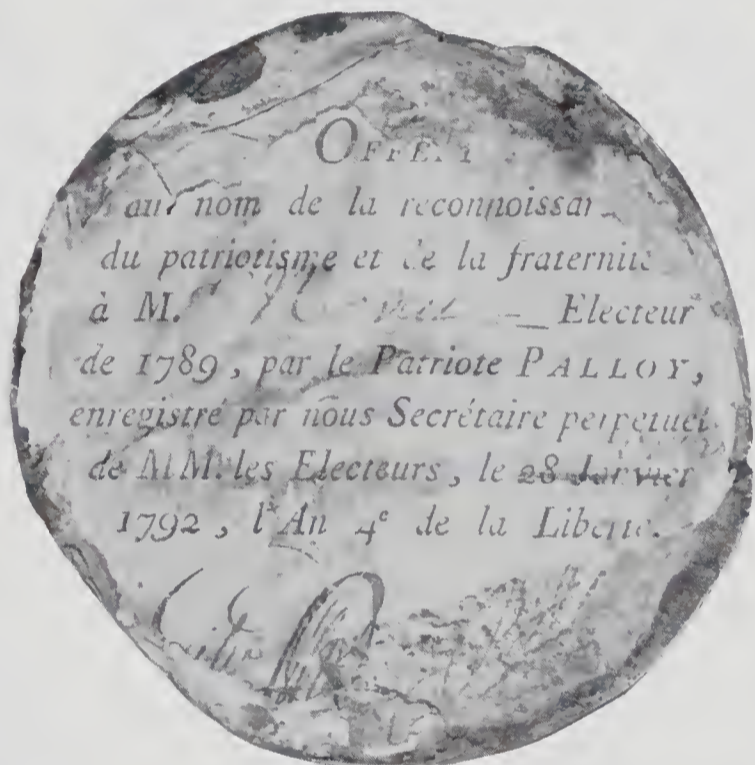 OFFERT
au nom de la reconnoissan
du patriotisme et de la fraternité
à M. Electeur
de 1789, par le Patriote PALLOY,
enregistré par nous Secrétaire perpetuel
de MM. les Electeurs, le 28 Janvier
1792, l'An 4e de la Liberté.